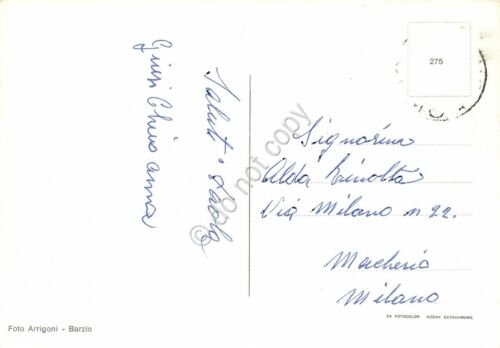 Giusi Chiara Anna
Saluti Paola
275
Signorina
Alda
Via Milano n 22.
Macherio
Milano
DA FOTOCOLOR KODAK EKTACHROME
Foto Arrigoni - Barzio
©do not copy